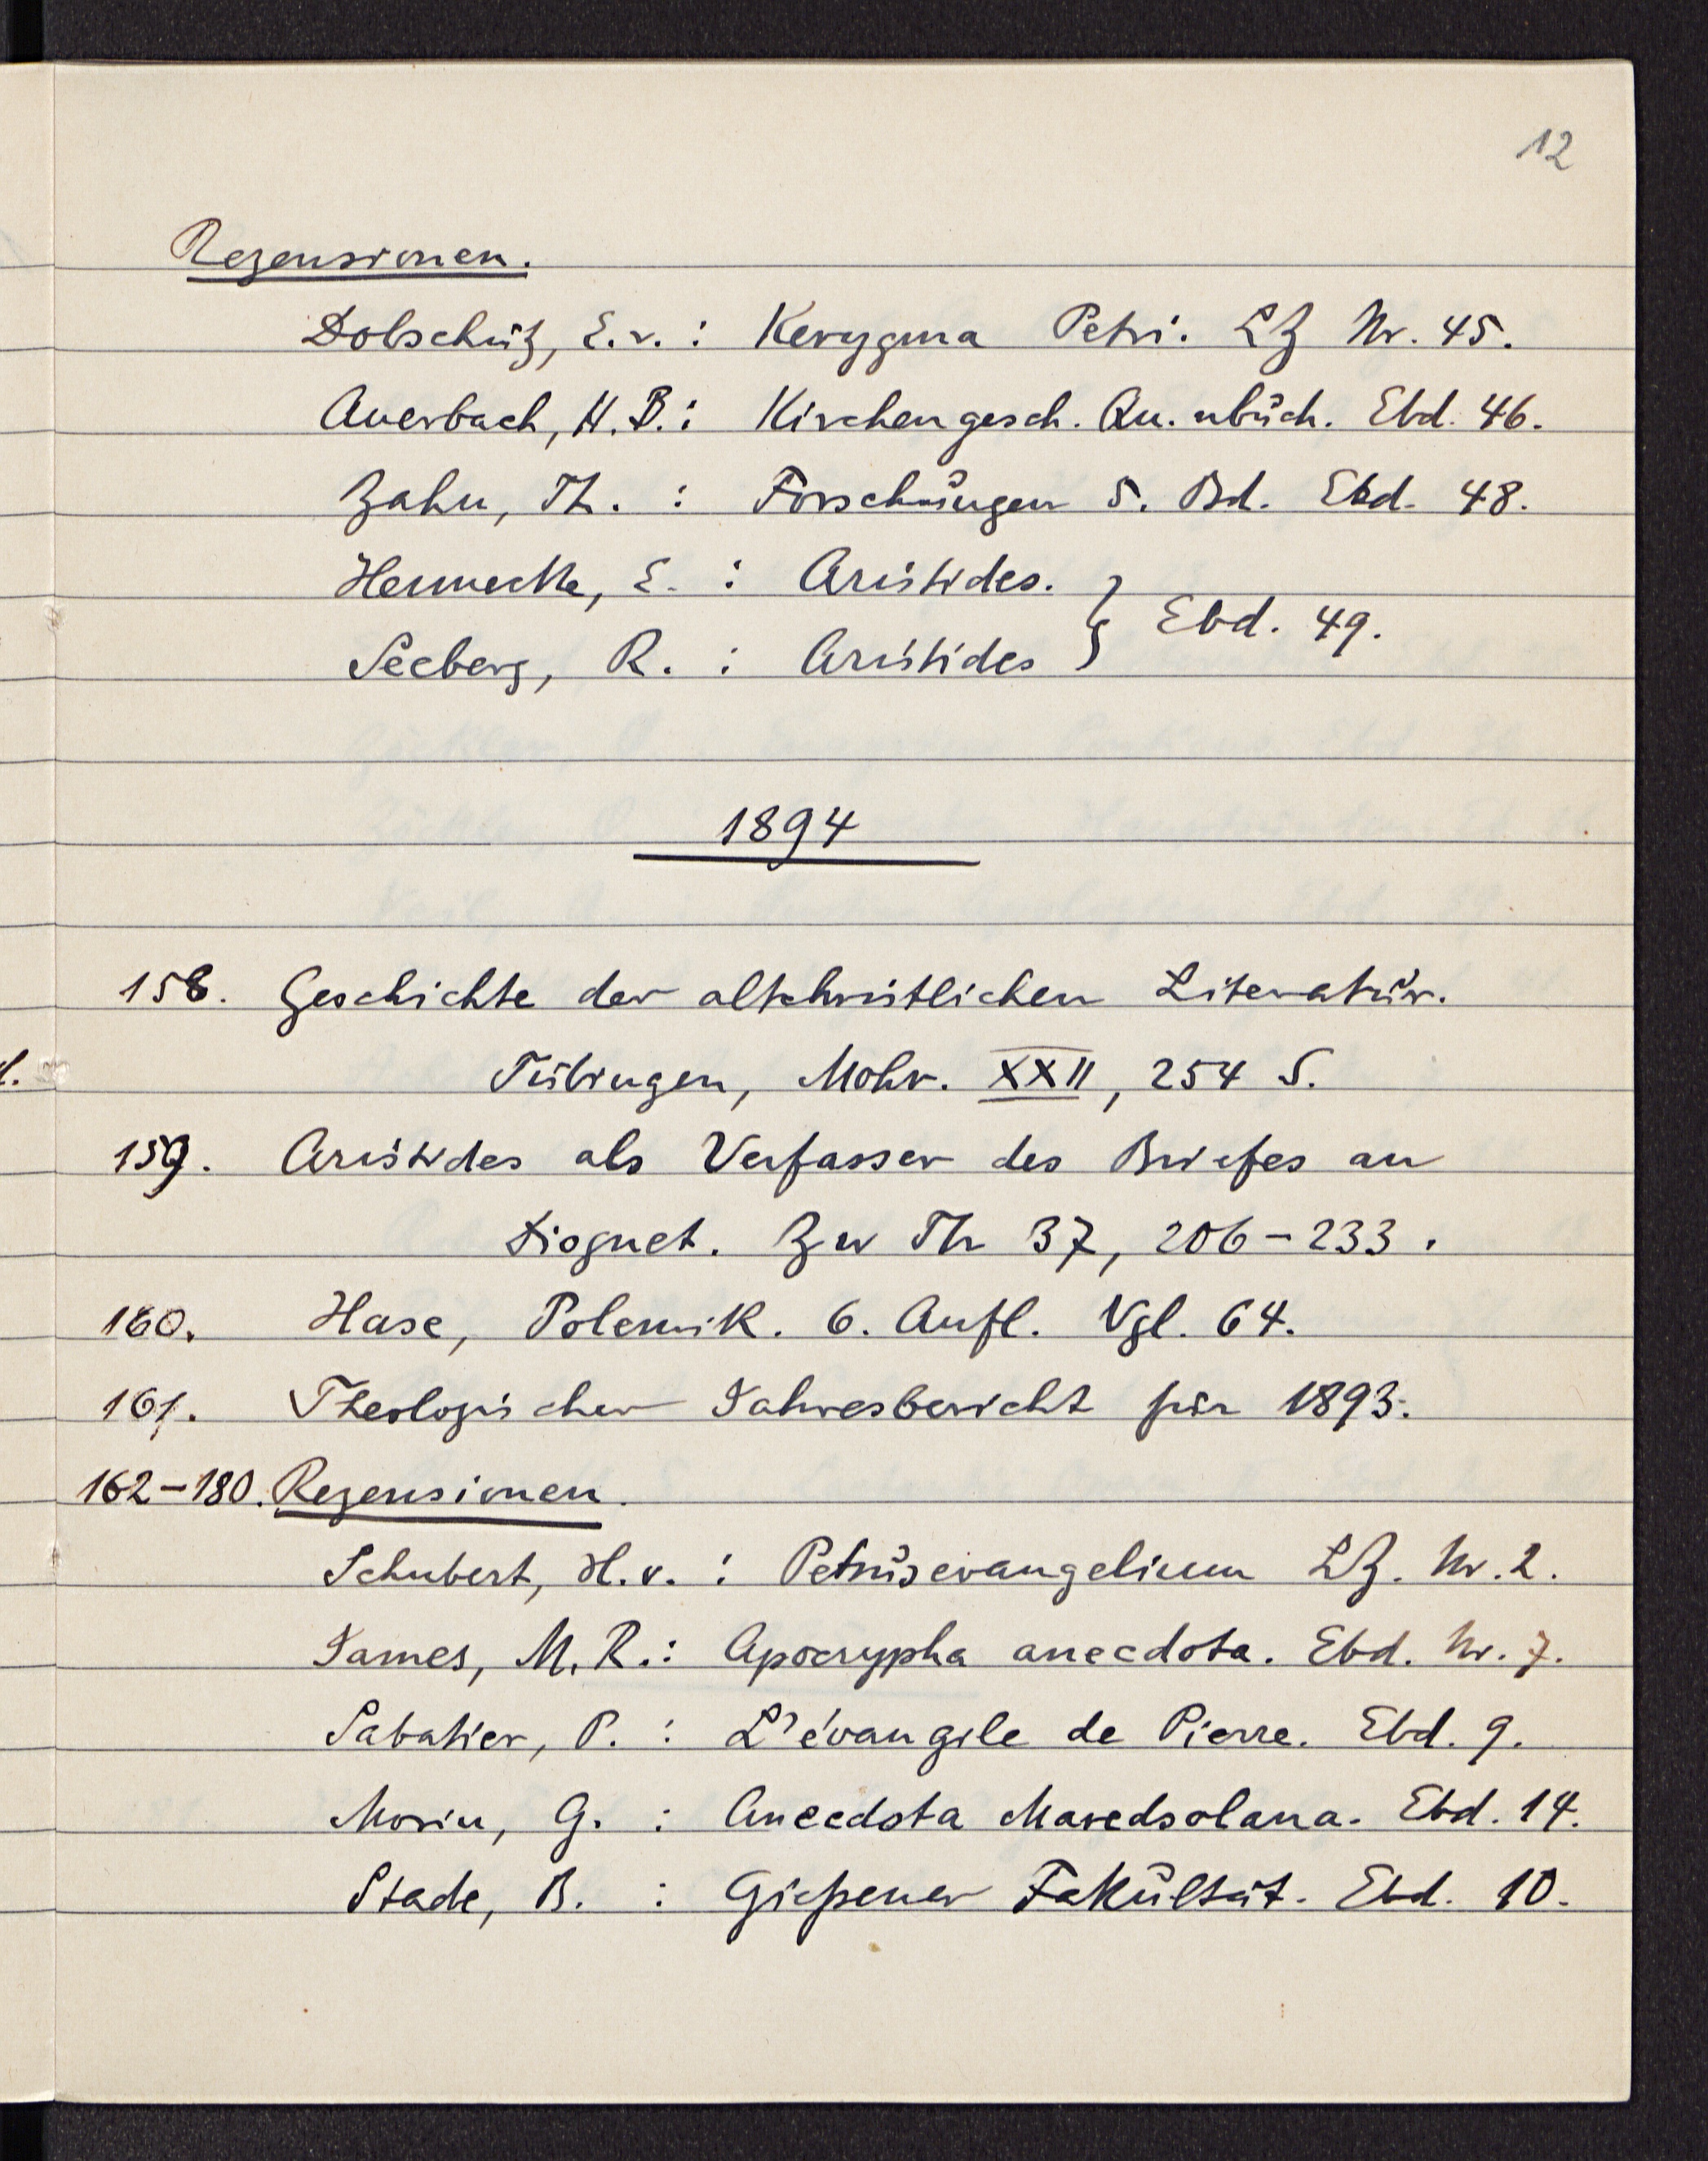 12
Rezensionen.
Dobschütz, E. v. : Kerygma Petri. LZ Nr. 45.
Auerbach, H. B. : Kirchengesch. Qu. nbuch. Ebd. 46.
Zahn, Th. : Forschungen 5. Bd. Ebd. 48.
Hennecke, E. : Aristides.
} Ebd. 49.
Seeberg, R. : Aristides
1894
158. Geschichte der altchristlichen Literatur.
Tübingen, Mohr. XXII, 254 S.
159. Aristides als Verfasser des Briefes an
Diognet. Zw Th 37, 206-233.
160. Hase, Polemik. 6. Aufl. Vgl. 64.
161. Theologischer Jahresbericht für 1893.
162-180. Rezensionen.
Schubert, H. v. : Petrusevangelium LZ. Nr. 2.
James, M. R. : Apocrypha anecdota. Ebd. Nr. 7.
Sabatier, P. : L'évangile de Pierre. Ebd. 9.
Morin, G. : Anecdota Maredsolana. Ebd. 14.
Stade, B. : Gießener Fakultät. Ebd. 10.